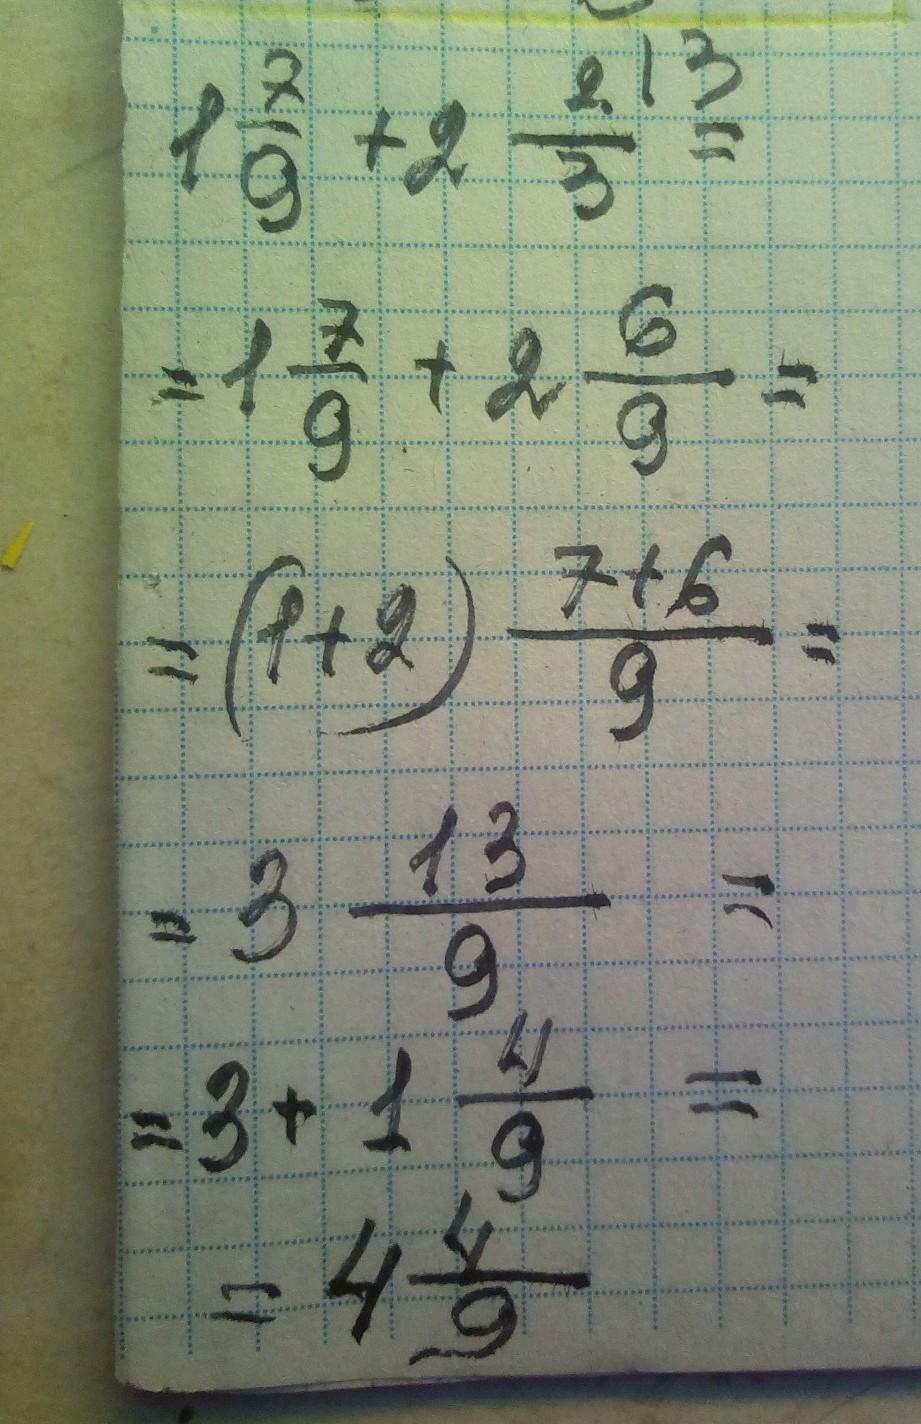 1 7/9 + 2 2/3 \3 =
= 1 7/9 + 2 6/9 =
= (1+2) 7+6/9 =
= 3 13/9 =
= 3 + 1 4/9 =
= 4 4/9